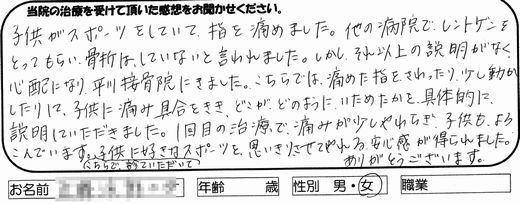 当院の治療を受けて頂いた感想をお聞かせください。
子供がスポーツをしていて、指を痛めました。他の病院で、レントゲンを
とってもらい、骨折は、していないと言われました。しかし、それ以上の説明がなく、
心配になり、平川接骨院にきました。こちらでは、痛めた指をさわったり、少し動か
したりして、子供に痛み具合をきき、どこが、どのように、いためたかを、具体的に、
説明していただきました。1回目の治療で、痛みが少しやわらぎ、子供も、よろ
こんでいます。子供に好きなスポーツを、思いきりさせてやれる、安心感が得られました。
(こちらで、診ていただいて)
ありがとうございます。
お名前 年齢 歳 性別 男・女 職業